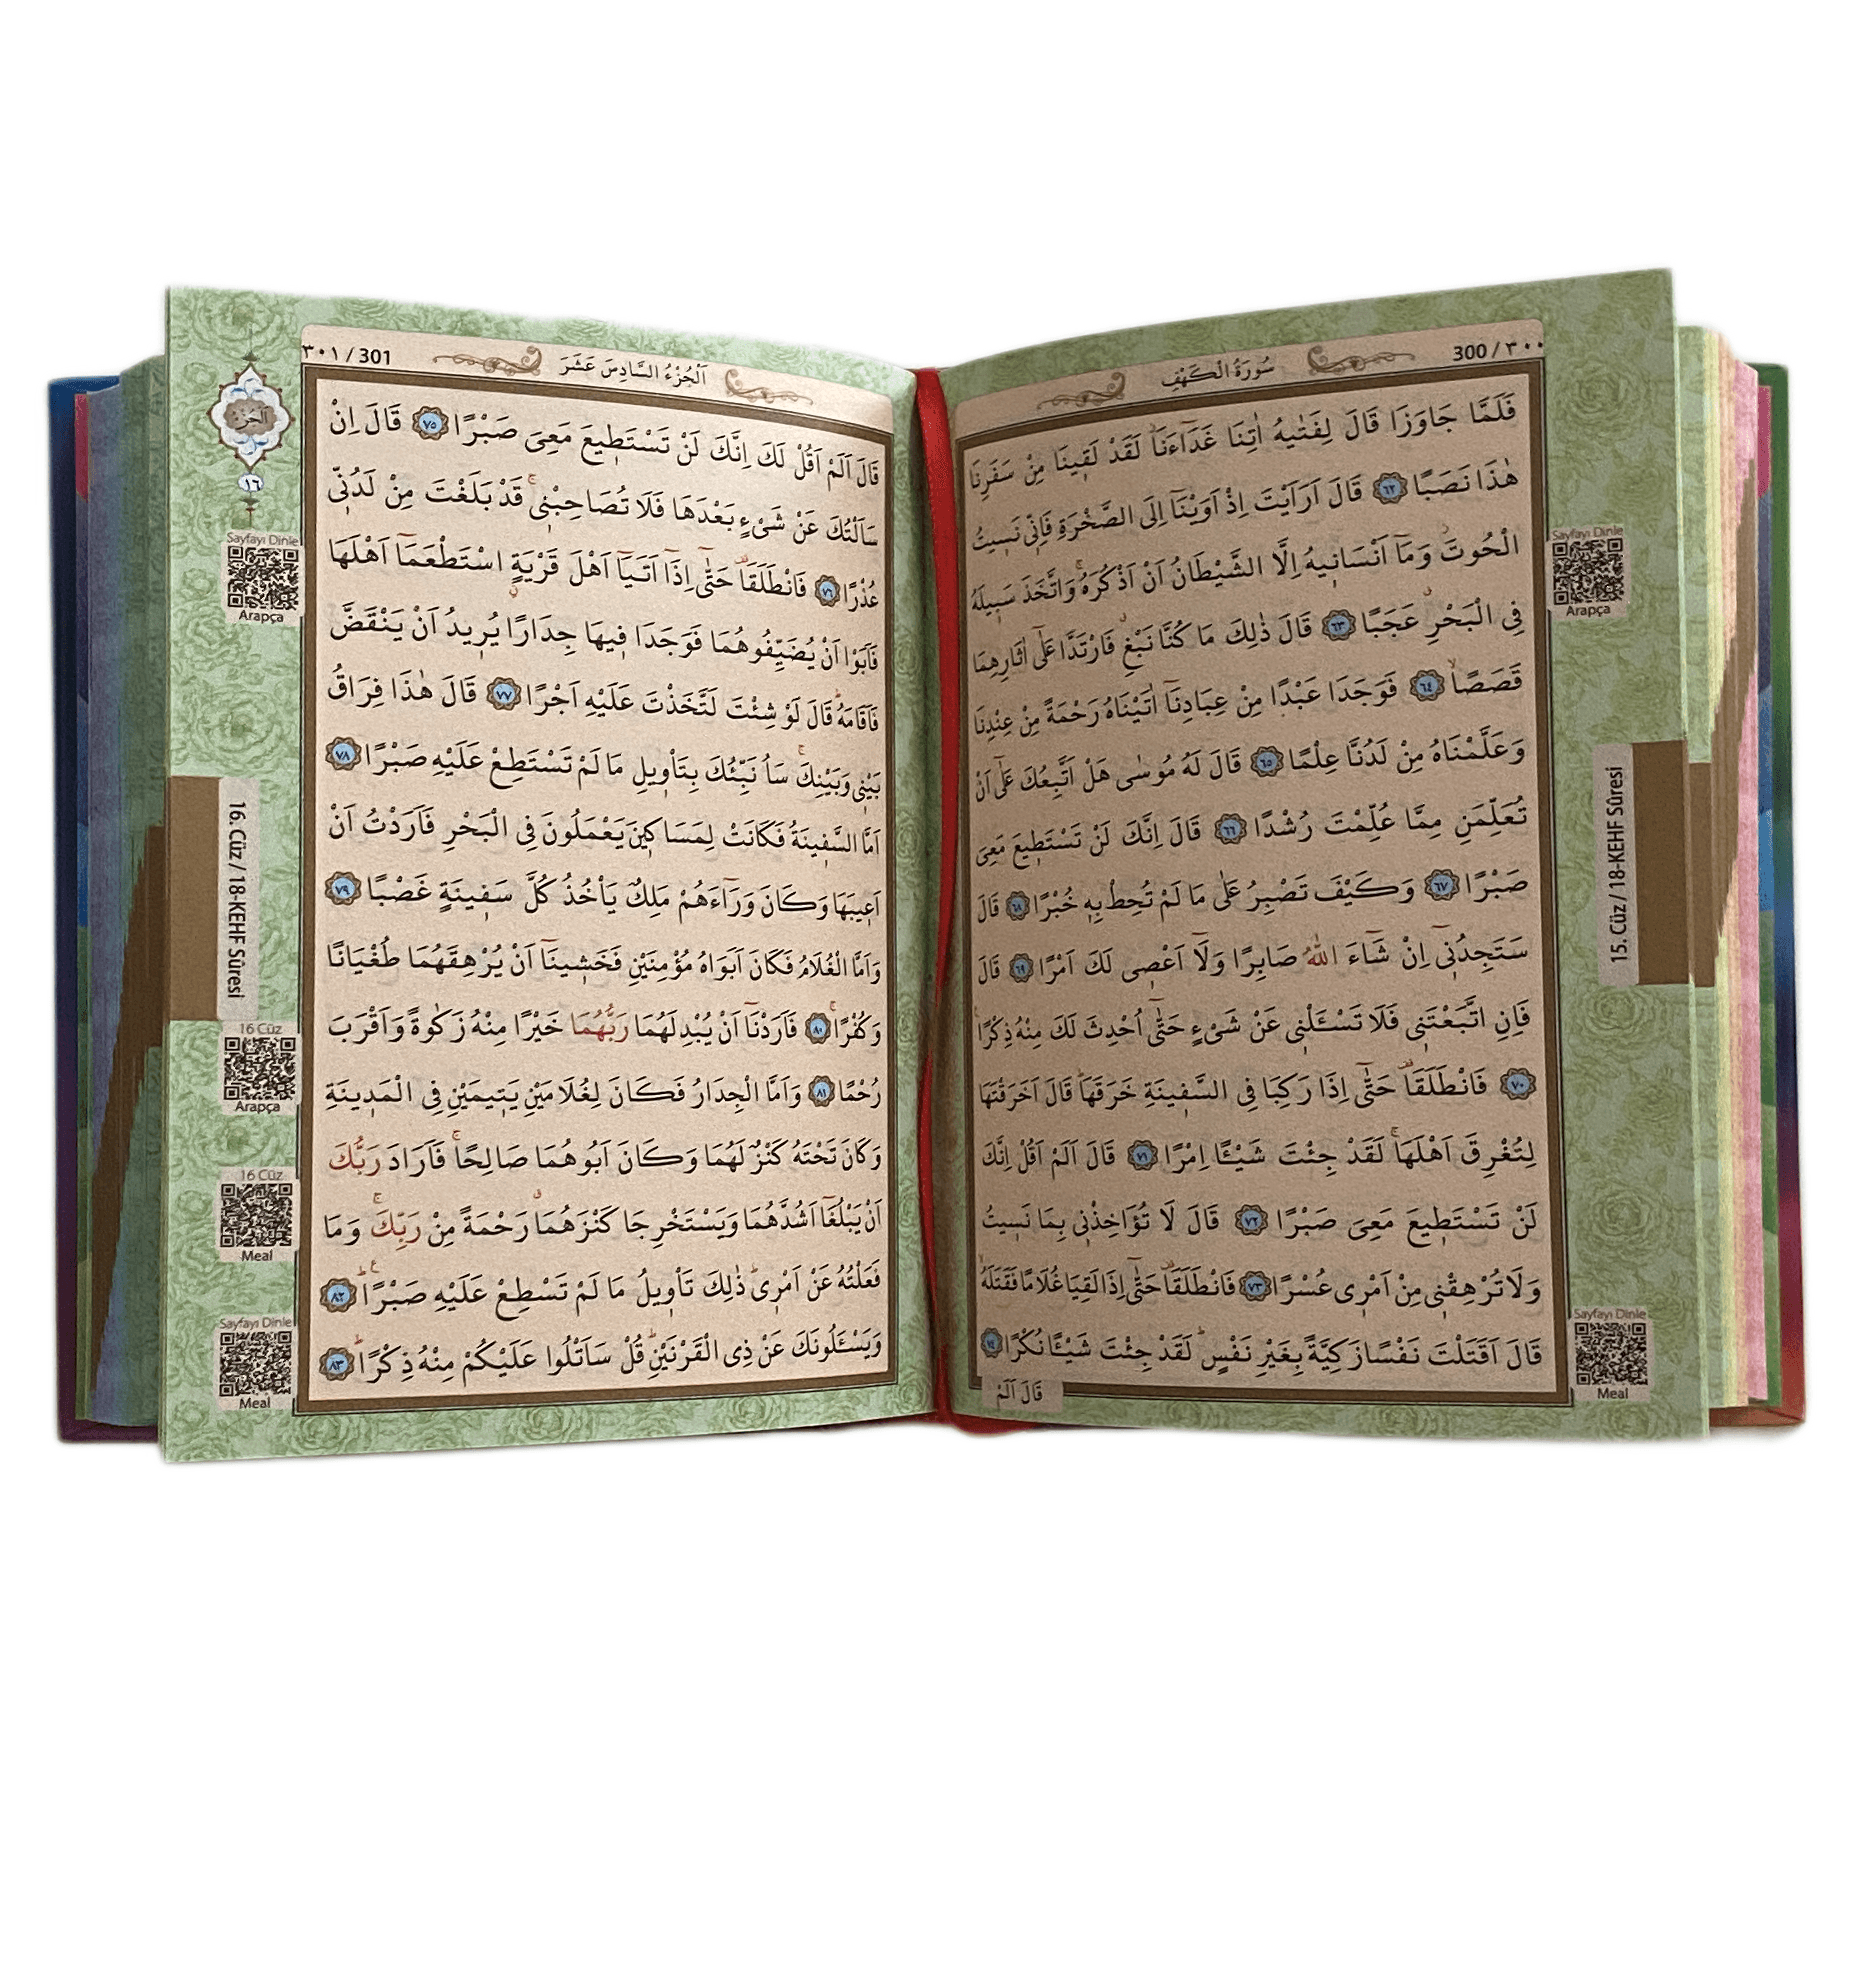 300 / ٣٠٠
سُورَةُ الْكَهْفِ
فَلَمَّا جَاوَزَا قَالَ لِفَتٰيهُ اٰتِنَا غَدَٓاءَنَاۘ لَقَدْ لَقٖينَا مِنْ سَفَرِنَا
هٰذَا نَصَبًا ٦٢ قَالَ اَرَاَيْتَ اِذْ اَوَيْنَٓا اِلَى الصَّخْرَةِ فَاِنّٖى نَسٖيتُ
الْحُوتَۘ وَمَٓا اَنْسَانٖيهُ اِلَّا الشَّيْطَانُ اَنْ اَذْكُرَهُۚ وَاتَّخَذَ سَبٖيلَهُ
فِى الْبَحْرِۗ عَجَبًا ٦٣ قَالَ ذٰلِكَ مَا كُنَّا نَبْغِۗ فَارْتَدَّا عَلٰٓى اٰثَارِهِمَا
قَصَصًاۙ ٦٤ فَوَجَدَا عَبْدًا مِنْ عِبَادِنَٓا اٰتَيْنَاهُ رَحْمَةً مِنْ عِنْدِنَا
وَعَلَّمْنَاهُ مِنْ لَدُنَّا عِلْمًا ٦٥ قَالَ لَهُ مُوسٰى هَلْ اَتَّبِعُكَ عَلٰٓى اَنْ
تُعَلِّمَنِ مِمَّا عُلِّمْتَ رُشْدًا ٦٦ قَالَ اِنَّكَ لَنْ تَسْتَطٖيعَ مَعِىَ
صَبْرًا ٦٧ وَكَيْفَ تَصْبِرُ عَلٰى مَا لَمْ تُحِطْ بِهٖ خُبْرًا ٦٨ قَالَ
سَتَجِدُنٖٓى اِنْ شَٓاءَ اللّٰهُ صَابِرًا وَلَٓا اَعْصٖى لَكَ اَمْرًا ٦٩ قَالَ
فَاِنِ اتَّبَعْتَنٖى فَلَا تَسْـَٔلْنٖى عَنْ شَىْءٍ حَتّٰٓى اُحْدِثَ لَكَ مِنْهُ ذِكْرًاۚ
٧٠ فَانْطَلَقَاۗ حَتّٰٓى اِذَا رَكِبَا فِى السَّفٖينَةِ خَرَقَهَاۜ قَالَ اَخَرَقْتَهَا
لِتُغْرِقَ اَهْلَهَاۚ لَقَدْ جِئْتَ شَيْـًٔا اِمْرًا ٧١ قَالَ اَلَمْ اَقُلْ اِنَّكَ
لَنْ تَسْتَطٖيعَ مَعِىَ صَبْرًا ٧٢ قَالَ لَا تُؤَاخِذْنٖى بِمَا نَسٖيتُ
وَلَا تُرْهِقْنٖى مِنْ اَمْرٖى عُسْرًا ٧٣ فَانْطَلَقَاۗ حَتّٰٓى اِذَا لَقِيَا غُلَامًا فَقَتَلَهُۙ
قَالَ اَقَتَلْتَ نَفْسًا زَكِيَّةً بِغَيْرِ نَفْسٍۜ لَقَدْ جِئْتَ شَيْـًٔا نُكْرًا ٧٤
قَالَ اَلَمْ
Sayfayı Dinle
Arapça
15. Cüz / 18-KEHF Sûresi
Sayfayı Dinle
Meal
٣٠١ / 301
اَلْجُزْءُ السَّادِسَ عَشَرَ
قَالَ اَلَمْ اَقُلْ لَكَ اِنَّكَ لَنْ تَسْتَطٖيعَ مَعِىَ صَبْرًا ٧٥ قَالَ اِنْ
سَاَلْتُكَ عَنْ شَىْءٍ بَعْدَهَا فَلَا تُصَاحِبْنٖىۚ قَدْ بَلَغْتَ مِنْ لَدُنّٖى
عُذْرًا ٧٦ فَانْطَلَقَاۗ حَتّٰٓى اِذَٓا اَتَيَٓا اَهْلَ قَرْيَةٍۨ اسْتَطْعَمَٓا اَهْلَهَا
فَاَبَوْا اَنْ يُضَيِّفُوهُمَا فَوَجَدَا فٖيهَا جِدَارًا يُرٖيدُ اَنْ يَنْقَضَّ
فَاَقَامَهُۜ قَالَ لَوْ شِئْتَ لَتَّخَذْتَ عَلَيْهِ اَجْرًا ٧٧ قَالَ هٰذَا فِرَاقُ
بَيْنٖى وَبَيْنِكَۚ سَاُنَبِّئُكَ بِتَاْوٖيلِ مَا لَمْ تَسْتَطِعْ عَلَيْهِ صَبْرًا ٧٨
اَمَّا السَّفٖينَةُ فَكَانَتْ لِمَسَاكٖينَ يَعْمَلُونَ فِى الْبَحْرِ فَاَرَدْتُ اَنْ
اَعٖيبَهَا وَكَانَ وَرَٓاءَهُمْ مَلِكٌ يَاْخُذُ كُلَّ سَفٖينَةٍ غَصْبًا ٧٩
وَاَمَّا الْغُلَامُ فَكَانَ اَبَوَاهُ مُؤْمِنَيْنِ فَخَشٖينَٓا اَنْ يُرْهِقَهُمَا طُغْيَانًا
وَكُفْرًاۚ ٨٠ فَاَرَدْنَٓا اَنْ يُبْدِلَهُمَا رَبُّهُمَا خَيْرًا مِنْهُ زَكٰوةً وَاَقْرَبَ
رُحْمًا ٨١ وَاَمَّا الْجِدَارُ فَكَانَ لِغُلَامَيْنِ يَتٖيمَيْنِ فِى الْمَدٖينَةِ
وَكَانَ تَحْتَهُ كَنْزٌ لَهُمَا وَكَانَ اَبُوهُمَا صَالِحًاۚ فَاَرَادَ رَبُّكَ
اَنْ يَبْلُغَٓا اَشُدَّهُمَا وَيَسْتَخْرِجَا كَنْزَهُمَاۗ رَحْمَةً مِنْ رَبِّكَۚ وَمَا
فَعَلْتُهُ عَنْ اَمْرٖىۜ ذٰلِكَ تَاْوٖيلُ مَا لَمْ تَسْطِعْ عَلَيْهِ صَبْرًاۜ ٨٢
وَيَسْـَٔلُونَكَ عَنْ ذِى الْقَرْنَيْنِۜ قُلْ سَاَتْلُوا عَلَيْكُمْ مِنْهُ ذِكْرًاۜ ٨٣
اَلْجُزْءُ
١٦
Sayfayı Dinle
Arapça
16. Cüz / 18-KEHF Sûresi
16 Cüz
Arapça
16 Cüz
Meal
Sayfayı Dinle
Meal